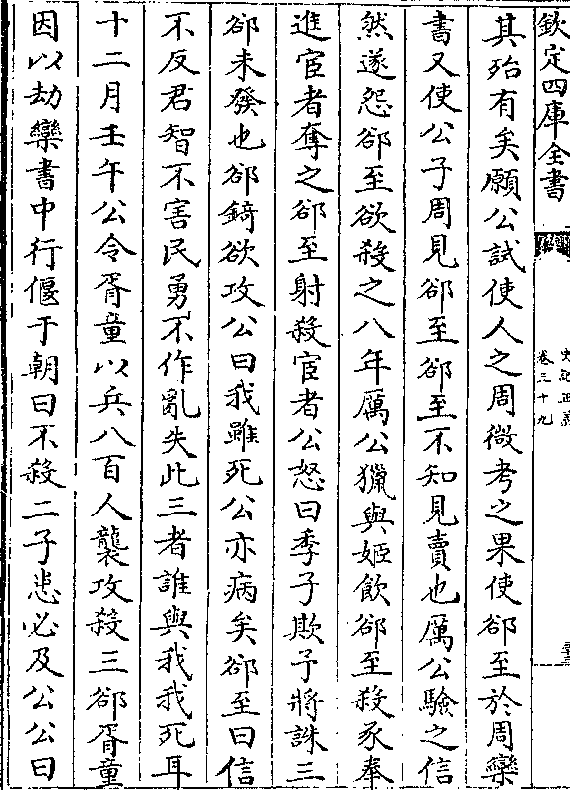 欽定四庫全書
史記正義
卷三十九
其殆有矣願公試使人之周微考之果使郤至於周欒
書又使公子周見郤至郤至不知見賣也厲公驗之信
然遂怨郤至欲殺之八年厲公獵與姬飲郤至殺豕奉
進宦者奪之郤至射殺宦者公怒曰季子欺予將誅三
郤未發也郤錡欲攻公曰我雖死公亦病矣郤至曰信
不反君智不害民勇不作亂失此三者誰與我我死耳
十二月壬午公令胥童以兵八百人襲攻殺三郤胥童
因以劫欒書中行偃于朝曰不殺二子患必及公公曰